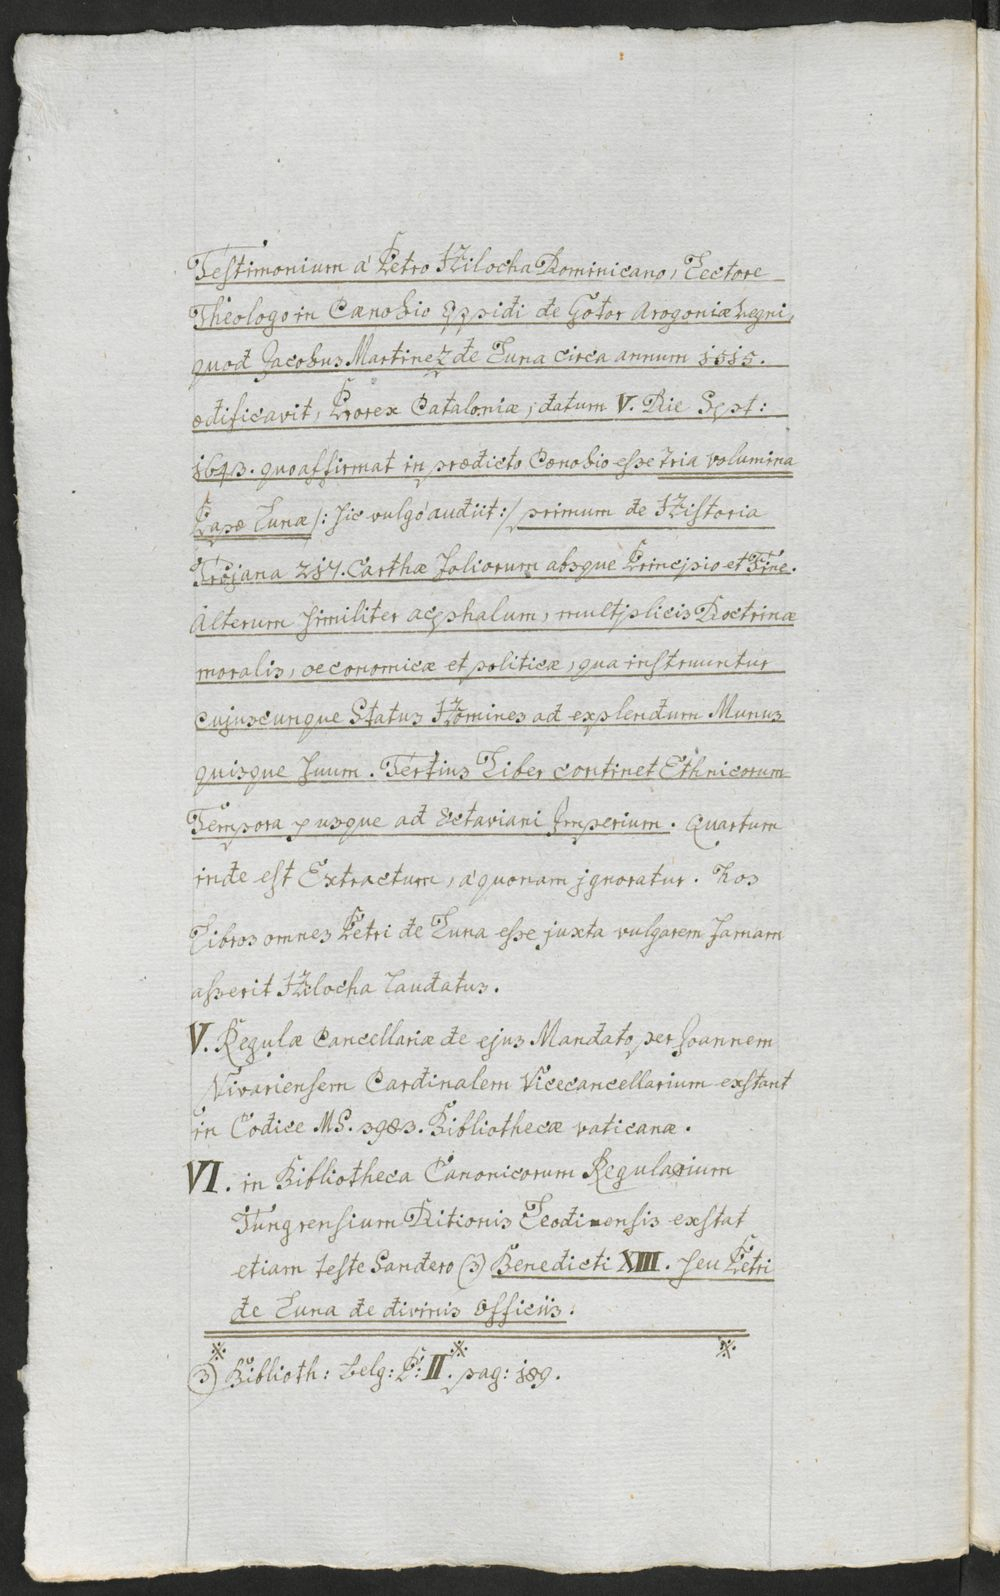 Testimonium à Petro Hilocha Dominicano, Lectore
Theologo in Cænobio Oppidi de Gotor Arogoniæ Regni,
quod Jacobus Martinez de Luna circa annum 1515.
ædificavit, Prorex Cataloniæ, datum V. Die Sept:
1643. quo affirmat in prædicto Cænobio esse tria volumina
Papæ Lunæ /: sic vulgó audiit :/ primum de Historia
Trojana 217. Carthæ Foliorum absque Principio et Fine.
Alterum similiter acephalum, multiplicis Doctrinæ
moralis, oeconomicæ et politicæ, qua instruuntur
cujuscunque Status Homines ad explendum Munus
quisque suum. Tertius Liber continet Ethnicorum
Tempora usque ad Octaviani Imperium. Quartum
inde est Extractum, à quonam ignoratur. Hos
Libros omnes Petri de Luna esse juxta vulgarem Famam
asserit Hilocha laudatus.
V. Regulæ Cancellariæ de ejus Mandato per Joannem
Vivariensem Cardinalem Vicecancellarium exstant
in Codice MS. 3983. Bibliothecæ vaticanæ.
VI. in Bibliotheca Canonicorum Regularium
Tungrensium Ditionis Leodinensis exstat
etiam teste Sandero (3) Benedicti XIII. seu Petri
de Luna de divinis Officiis.
3) Biblioth: Belg: P: II. pag: 189.